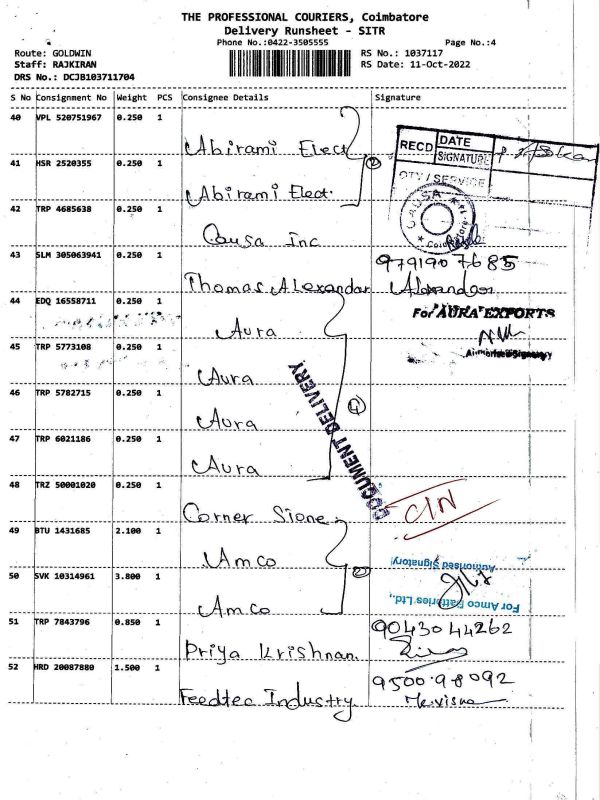 THE PROFESSIONAL COURIERS, Coimbatore
Delivery Runsheet - SITR
Phone No.:0422-3505555 Page No.:4
Route: GOLDWIN RS No.: 1037117
Staff: RAJKIRAN RS Date: 11-Oct-2022
DRS No.: DCJB103711704
S No Consignment No Weight PCS Consignee Details Signature
40 VPL 520751967 0.250 1
Abirami Elect
RECD DATE
SIGNATURE
QTY / SERVICE
2
41 HSR 2520355 0.250 1
Abirami Elect.
CAUSA
42 TRP 4685638 0.250 1
Causa Inc
43 SLM 305063941 0.250 1
9791907685
Thomas Alexandar Alexander
44 EDQ 16558711 0.250 1
For AURA EXPORTS
Aura
Authorised Signatory
45 TRP 5773108 0.250 1
Aura
46 TRP 5782715 0.250 1
4
DOCUMENT DELIVERY
Aura
47 TRP 6021186 0.250 1
Aura
48 TRZ 50001020 0.250 1
C/N
Corner Stone
49 BTU 1431685 2.100 1
Amco
Authorised Signatory
50 SVK 10314961 3.800 1
2
Amco
For Amco Batteries Ltd.,
51 TRP 7843796 0.850 1
9043044262
Priya Krishnan.
52 HRD 20087880 1.500 1
950098092
Feedtec Industry